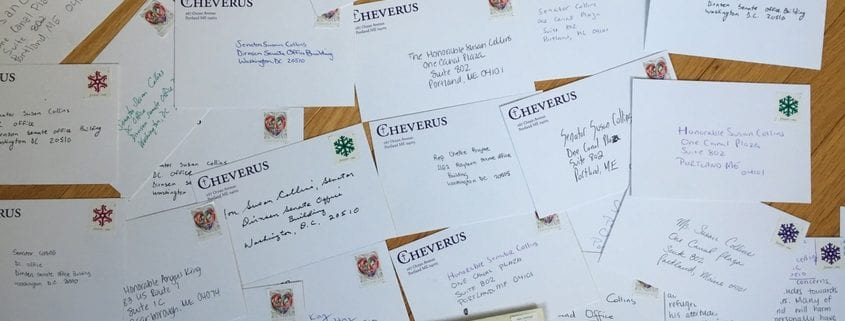 Portland, ME
CHEVERUS
267 Ocean Avenue
Portland ME 04103
Senator Susan Collins
Dirksen Senate Office Building
Washington, DC 20510
CHEVERUS
267 Ocean Avenue
Portland ME 04103
The Honorable Susan Collins
One Canal Plaza
Suite 802
Portland, ME 04101
Senator Susan Collins
One Canal Plaza
Suite 802
Portland, ME 04101
Dirksen Senate Office Building
Washington D.C. 20510
VERUS
Senator Susan Collins
DC office
Dirksen Senate Office Building
Washington DC 20510
Senator Susan Collins
DC Office
Dirksen Senate
Washington DC
Senator Susan Collins
DC Office
Dirksen Senate
Washington
CHEVERUS
267 Ocean Avenue
Portland ME 04103
Susan Collins, Senator
Dirksen Senate Office
Building
Washington, D.C. 20510
CHEVERUS
267 Ocean Avenue
Portland ME 04103
Rep Chellie Pingree
2162 Rayburn House Office
Building
Washington DC 20515
CHEVERUS
267 Ocean Avenue
Portland ME 04103
Senator Susan Collins
One Canal Plaza
Suite 802
Portland, ME
Honorable Susan Collins
One Canal Plaza
Suite 802
Portland ME
04101
ERUS
Senator Collins
DC office
Dirksen Senate Office Building
Washington, DC 20510
Honorable Angus King
83 US Route 1
Suite 1C
Scarborough, ME 04074
CHEVERUS
267 Ocean Avenue
Portland ME 04103
Honorable Senator Collins
One Canal Plaza
Suite 802
Portland ME 04101
Ms. Susan Collins
One Canal Plaza
Suite 802
Portland, Maine 04101
Collins
and Office
as refuge
his attitudes
concerns,
towards
us. Many of
nd will harm
personally have